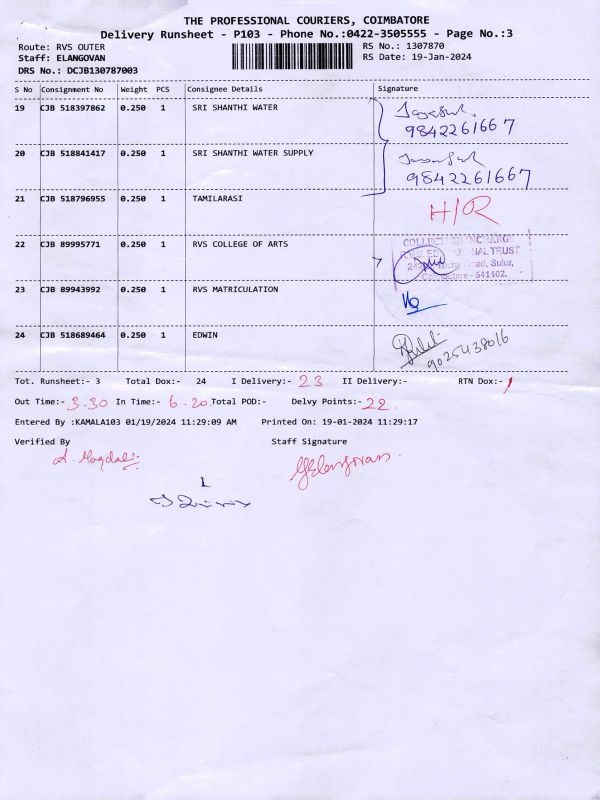 THE PROFESSIONAL COURIERS, COIMBATORE
Delivery Runsheet - P103 - Phone No.:0422-3505555 - Page No.:3
Route: RVS OUTER RS No.: 1307870
Staff: ELANGOVAN RS Date: 19-Jan-2024
DRS No.: DCJB130787003
S No Consignment No Weight PCS Consignee Details Signature
19 CJB 518397862 0.250 1 SRI SHANTHI WATER
9842261667
20 CJB 518841417 0.250 1 SRI SHANTHI WATER SUPPLY
9842261667
21 CJB 518796955 0.250 1 TAMILARASI H/R
22 CJB 89995771 0.250 1 RVS COLLEGE OF ARTS
TRUST
Road, Sulur,
Coimbatore - 641402.
23 CJB 89943992 0.250 1 RVS MATRICULATION
24 CJB 518689464 0.250 1 EDWIN
9025438016
Tot. Runsheet:- 3 Total Dox:- 24 I Delivery:- 23 II Delivery:- RTN Dox:- 1
Out Time:- 3.30 In Time:- 6.20 Total POD:- Delvy Points:- 22.
Entered By :KAMALA103 01/19/2024 11:29:09 AM Printed On: 19-01-2024 11:29:17
Verified By Staff Signature